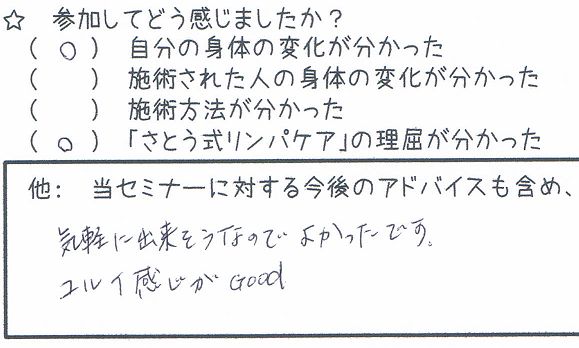 ☆ 参加してどう感じましたか？
( ○ ) 自分の身体の変化が分かった
( ) 施術された人の身体の変化が分かった
( ) 施術方法が分かった
( ○ ) 「さとう式リンパケア」の理屈が分かった
他: 当セミナーに対する今後のアドバイスも含め、
気軽に出来そうなので よかったです。
ユルイ感じが GOOd